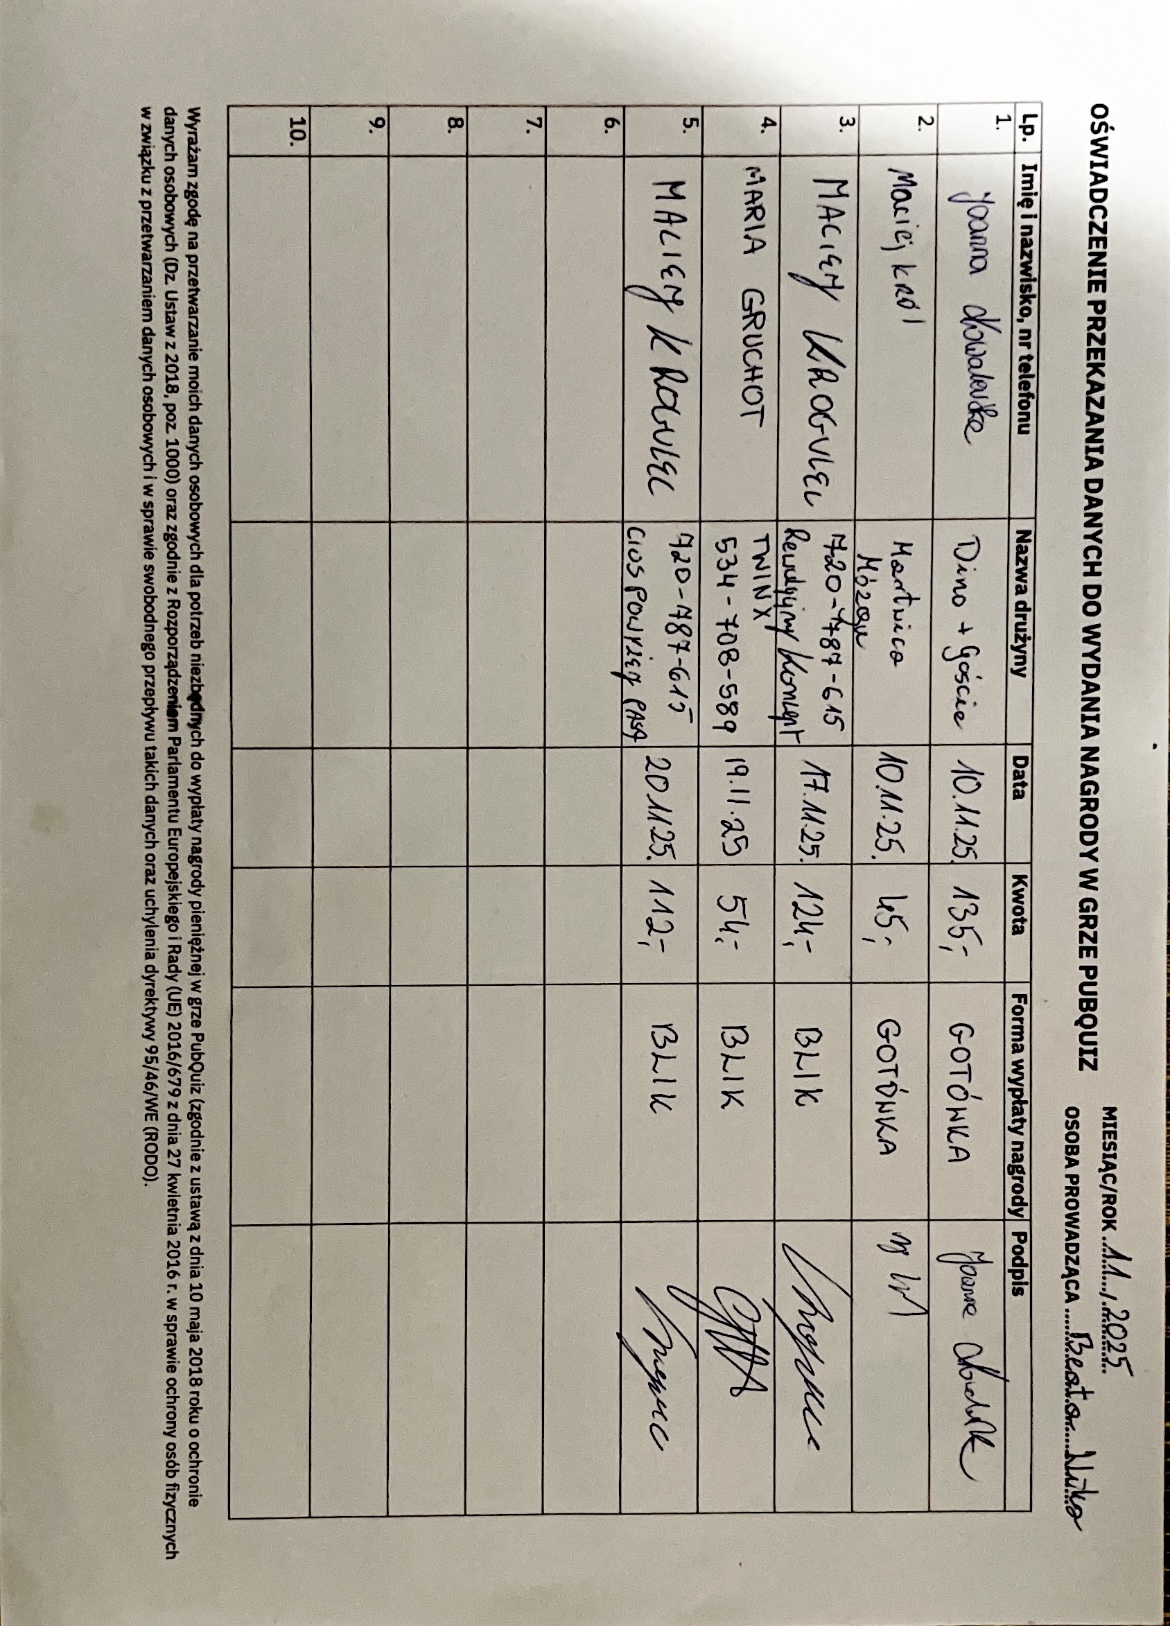 OŚWIADCZENIE PRZEKAZANIA DANYCH DO WYDANIA NAGRODY W GRZE PUBQUIZ
MIESIĄC/ROK 11/2025
OSOBA PROWADZĄCA Beata
Lp. Imię i nazwisko, nr telefonu Nazwa drużyny Data Kwota Forma wypłaty nagrody Podpis
1. Joanna Kowalewska Dino + Goście 10.11.25. 135,- GOTÓWKA
2. Maciej Król Martwica Mózgu 10.11.25. 45,- GOTÓWKA
3. MACIEJ KROGULEC 720-787-615 Rewelacyjny Koncept 17.11.25. 124,- BLIK
4. MARIA GRUCHOT TWINX 534-708-589 19.11.25 54,- BLIK
5. MACIEJ KROGULEC 720-787-615 CIOS PONIŻEJ PASA 20.11.25. 112,- BLIK
6.
7.
8.
9.
10.
Wyrażam zgodę na przetwarzanie moich danych osobowych dla potrzeb niezbędnych do wypłaty nagrody pieniężnej w grze PubQuiz (zgodnie z ustawą z dnia 10 maja 2018 roku o ochronie
danych osobowych (Dz. Ustaw z 2018, poz. 1000) oraz zgodnie z Rozporządzeniem Parlamentu Europejskiego i Rady (UE) 2016/679 z dnia 27 kwietnia 2016 r. w sprawie ochrony osób fizycznych
w związku z przetwarzaniem danych osobowych i w sprawie swobodnego przepływu takich danych oraz uchylenia dyrektywy 95/46/WE (RODO).